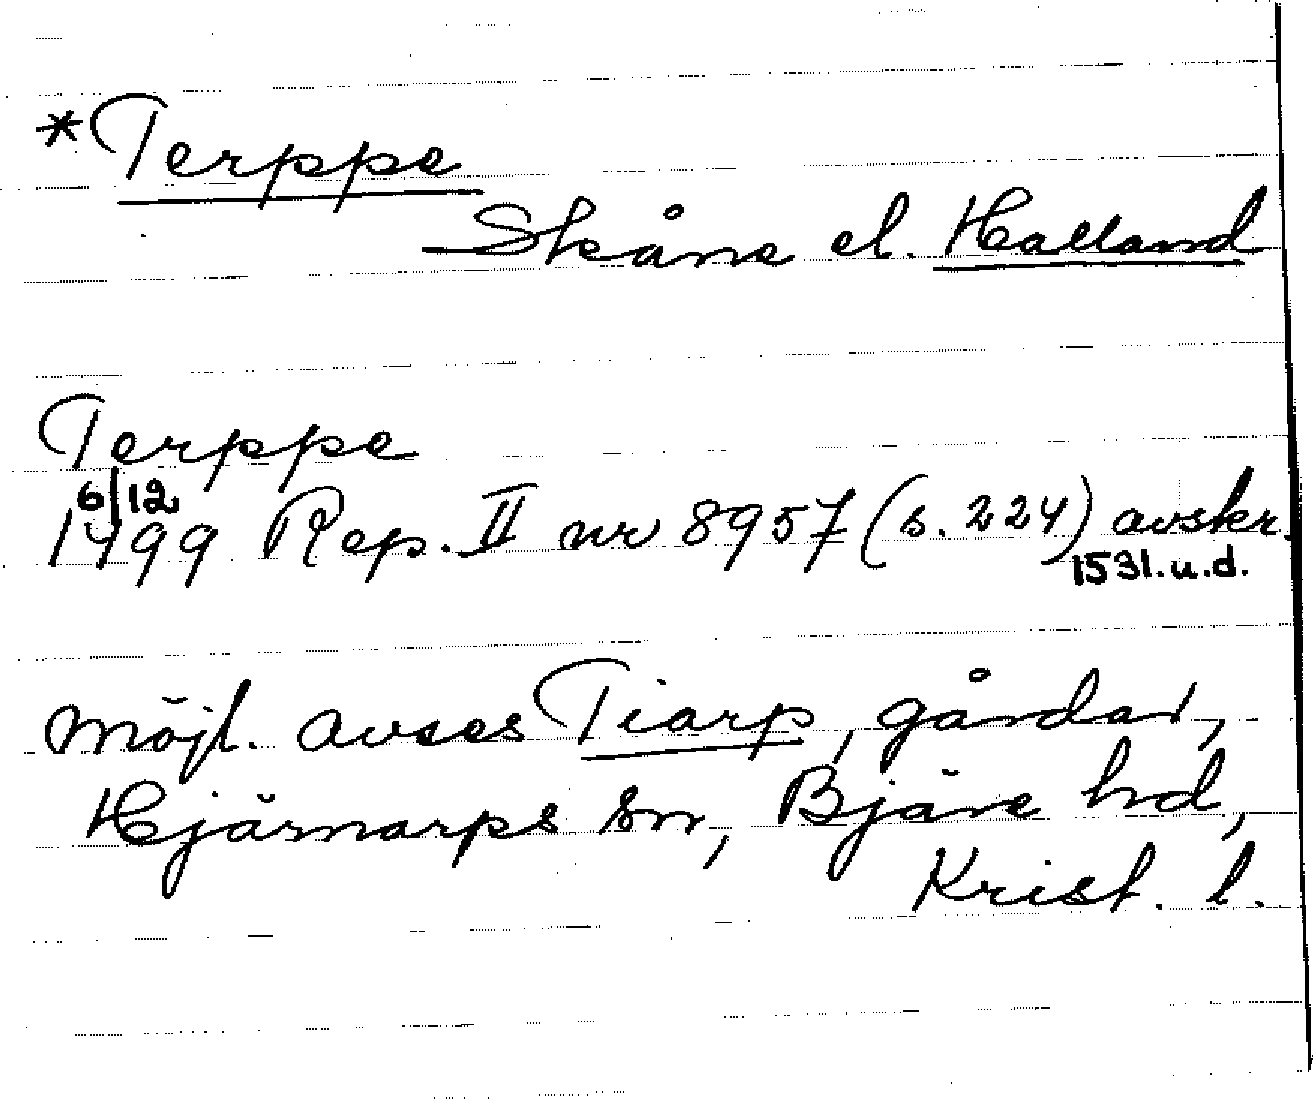 *Terppe
Skåne el. Halland
Terppe
6/12
1499 Rep. II nr 8957 (s. 224) avskr.
1531. u.d.
Möjl. avses Tiarp, gårdar,
Hjärnarps sn, Bjäre hd,
Krist. l.